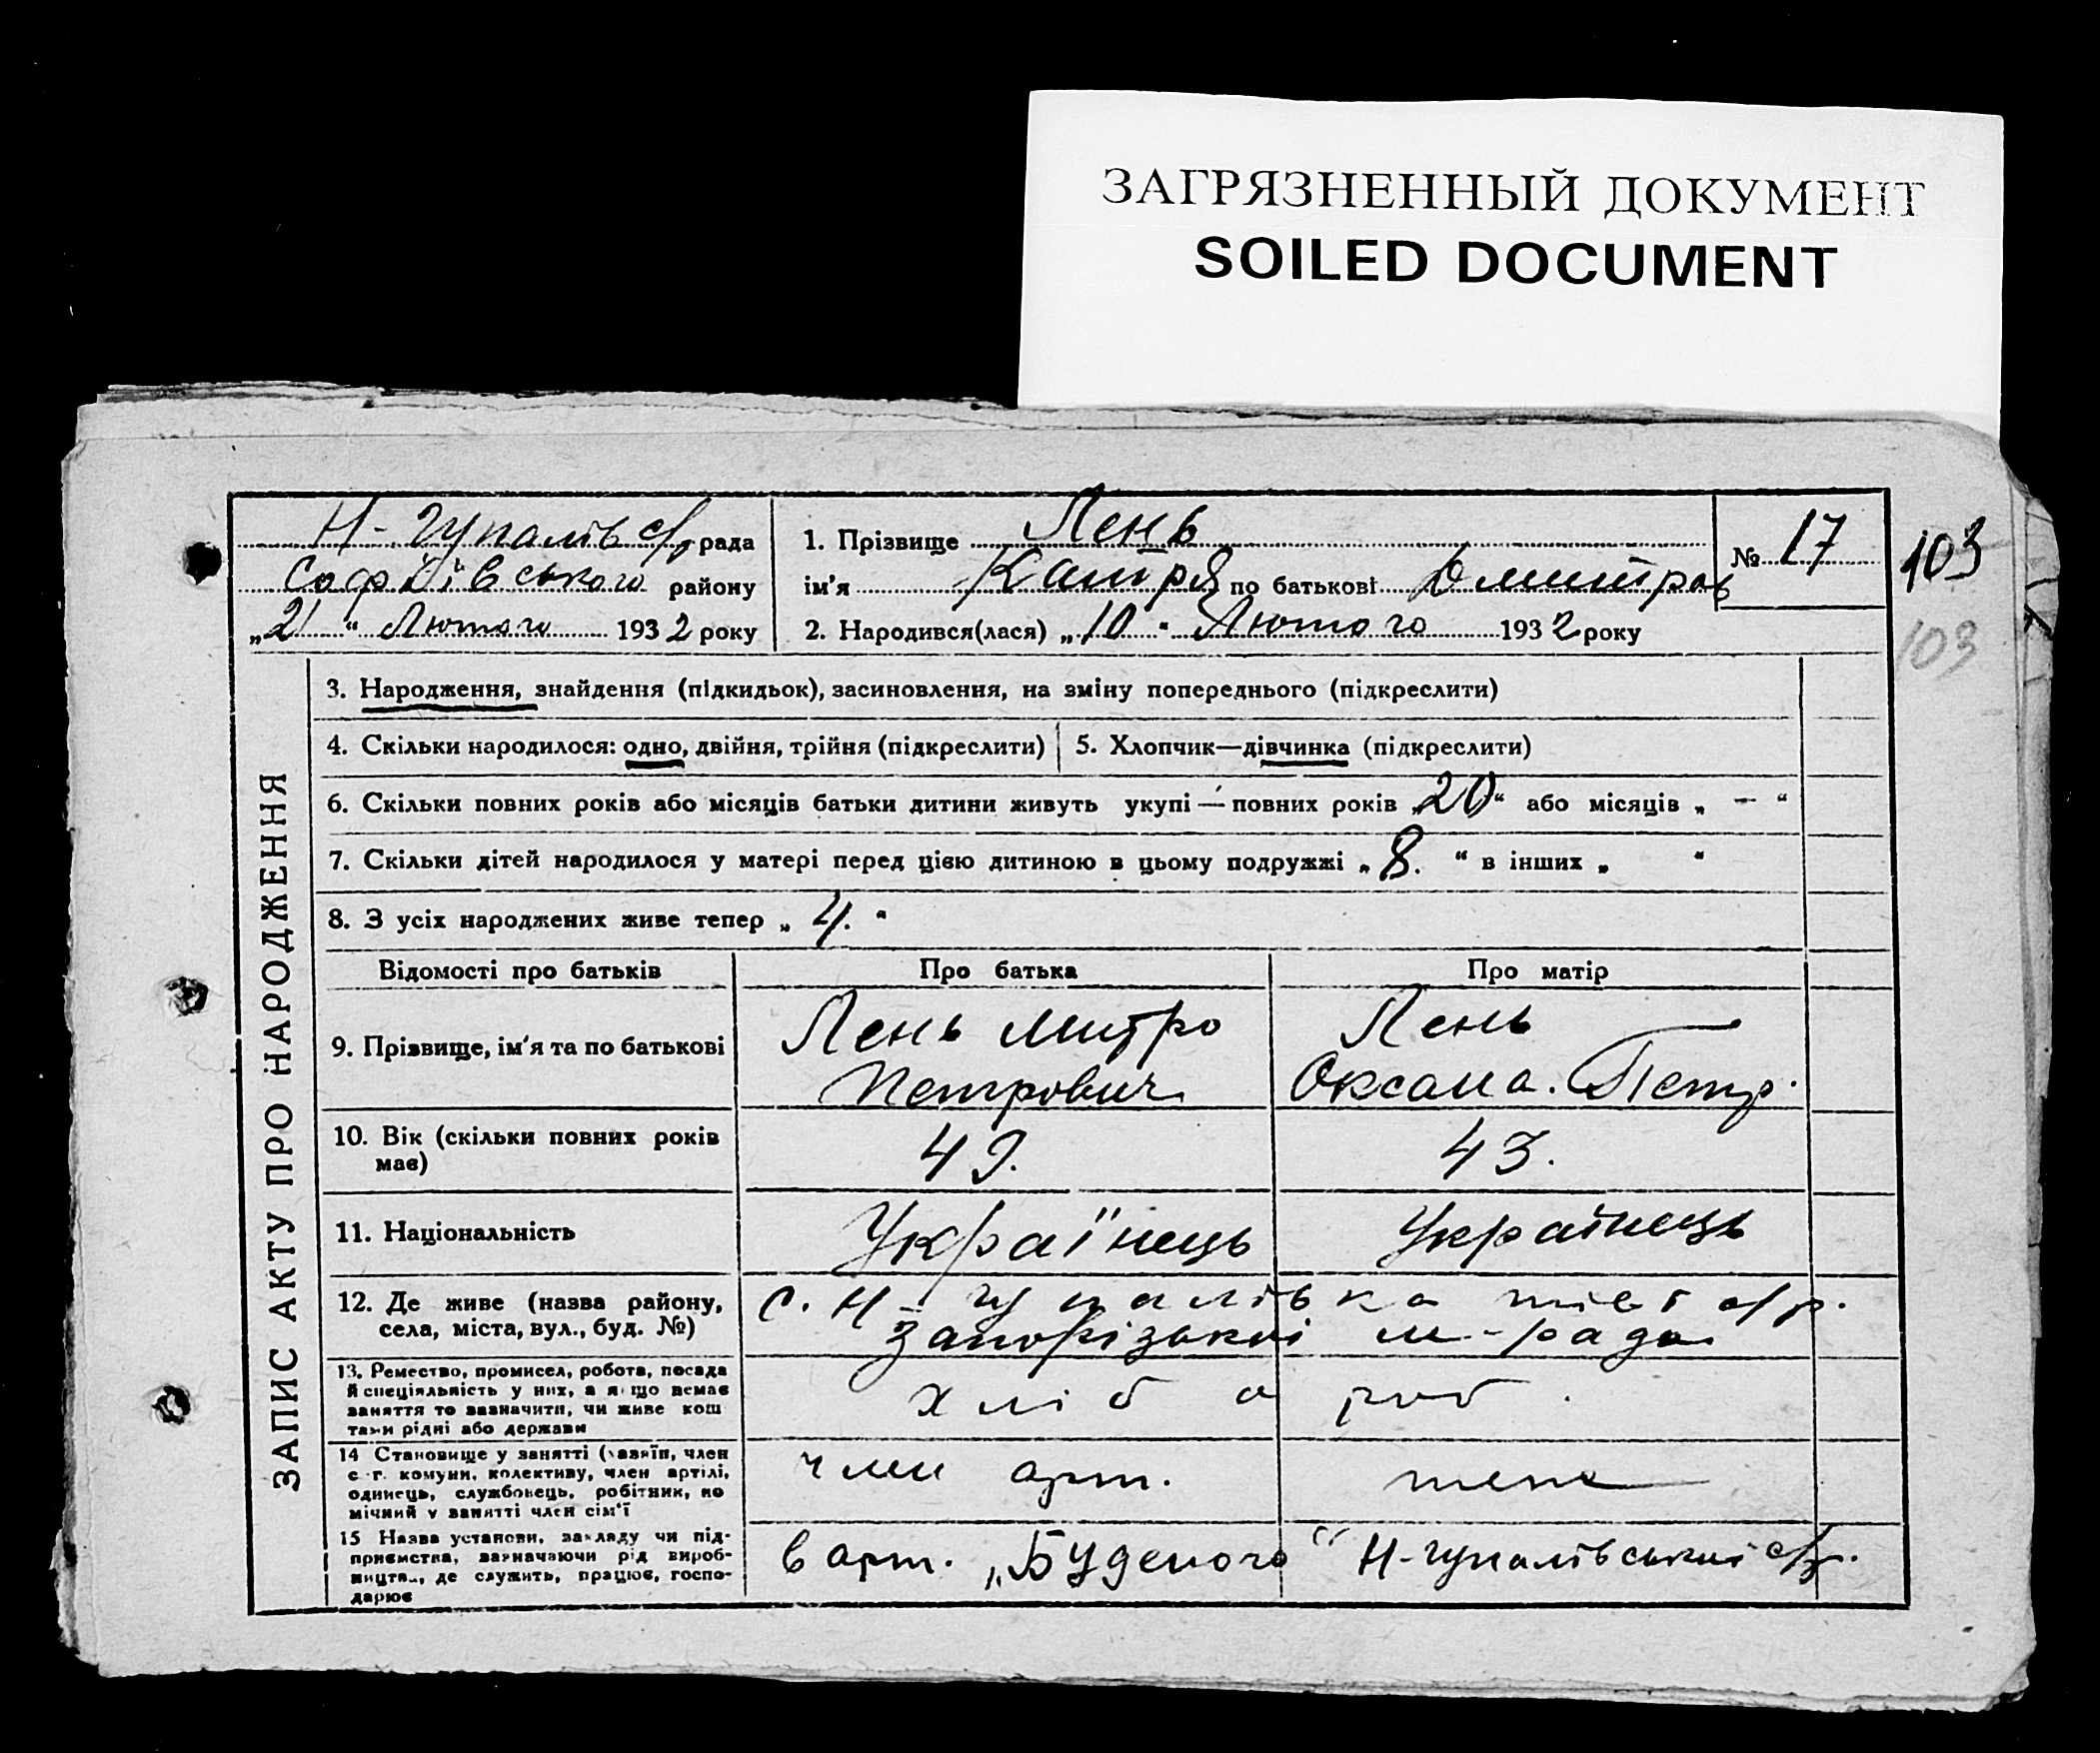 ЗАГРЯЗНЕННЫЙ ДОКУМЕНТ
SOILED DOCUMENT
Н-Гупалів с/р рада
Софіївського району
„21“ Лютого 1932 року
1. Прізвище Лень
ім'я Катря по батькові Дмитров
2. Народився(лася) „10“ Лютого 1932 року
№ 17
103
103
ЗАПИС АКТУ ПРО НАРОДЖЕННЯ
3. Народження, знайдення (підкидьок), засиновлення, на зміну попереднього (підкреслити)
4. Скільки народилося: одно, двійня, трійня (підкреслити)
5. Хлопчик—дівчинка (підкреслити)
6. Скільки повних років або місяців батьки дитини живуть укупі — повних років „20“ або місяців „ — “
7. Скільки дітей народилося у матері перед цією дитиною в цьому подружжі „8.“ в інших „ “
8. З усіх народжених живе тепер „4.“
Відомості про батьків
Про батька
Про матір
9. Прізвище, ім'я та по батькові
Лень Митро
Петрович
Лень
Оксана. Петр.
10. Вік (скільки повних років
має)
49.
43.
11. Національність
Українець
Українець
12. Де живе (назва району,
села, міста, вул., буд. №)
с. Н-Гупалівка тієї с/р.
Запорізької м-ради
13. Ремество, промисел, робота, посада
й спеціяльність у них, а якщо немає
заняття то зазначити, чи живе кош
тами рідні або держави
хлібороб.
14 Становище у занятті (хазяїн, член
с-г. комуни, колективу, член артілі,
одинець, службовець, робітник, по
мічний у занятті член сім'ї
член арт.
теж
15 Назва установи, закладу чи під-
приємства, зазначаючи рід вироб-
ництва, де служить, працює, госпо-
дарює
в арт. „Буденого“ Н-гупалівської с/р.